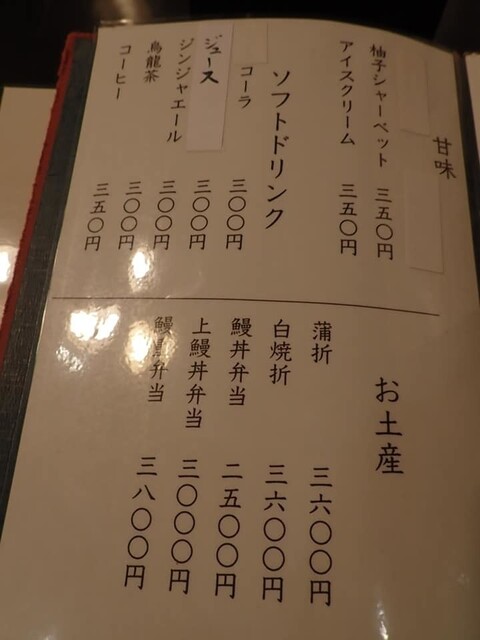 甘味
柚子シャーベット 三五〇円
アイスクリーム 三五〇円
ソフトドリンク
コーラ 三〇〇円
ジュース 三〇〇円
ジンジャエール 三〇〇円
烏龍茶 三〇〇円
コーヒー 三五〇円
お土産
蒲折 三六〇〇円
白焼折 三六〇〇円
鰻丼弁当 二五〇〇円
上鰻丼弁当 三〇〇〇円
弁当 三八〇〇円